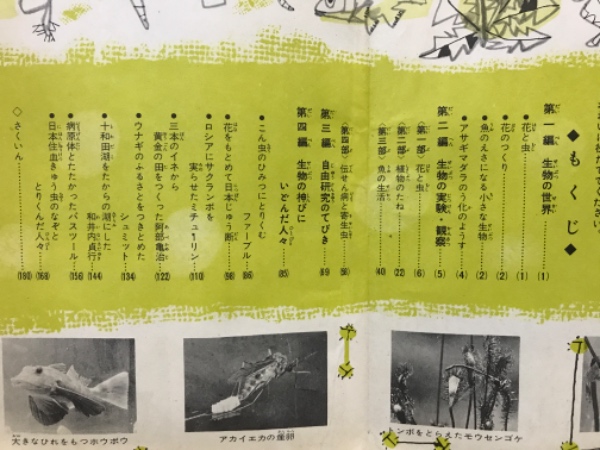 がまいにまっていてください。
◆もくじ◆
第一編 生物の世界……(1)
●花と虫……(1)
●花のつくり……(2)
●魚のえさになる小さな生物……(2)
●アサギマダラのうかのようす……(4)
第二編 生物の実験・観察……(5)
〈第一部〉花と虫……(6)
〈第二部〉植物のたね……(22)
〈第三部〉魚の生活……(40)
〈第四部〉伝せん病と寄生虫……(50)
第三編 自由研究のてびき……(69)
第四編 生物の神ぴに
いどんだ人々……(85)
●こん虫のひみつにとりくむ
ファーブル……(86)
●花をもとめて日本じゅう断……(98)
●ロシアにサクランボを
実らせたミチューリン……(110)
●三本のイネから
黄金の田をつくった阿部亀治……(122)
●ウナギのふるさとをつきとめた
シュミット……(134)
●十和田湖をたからの湖にした
和井内貞行……(144)
●病原体とたたかったパスツール……(156)
●日本住血きゅう虫のなぞと
とりくんだ人々……(168)
◇さくいん……(180)
大きなひれをもつホウボウ
アカイエカの産卵
トンボをとらえたモウセンゴケ